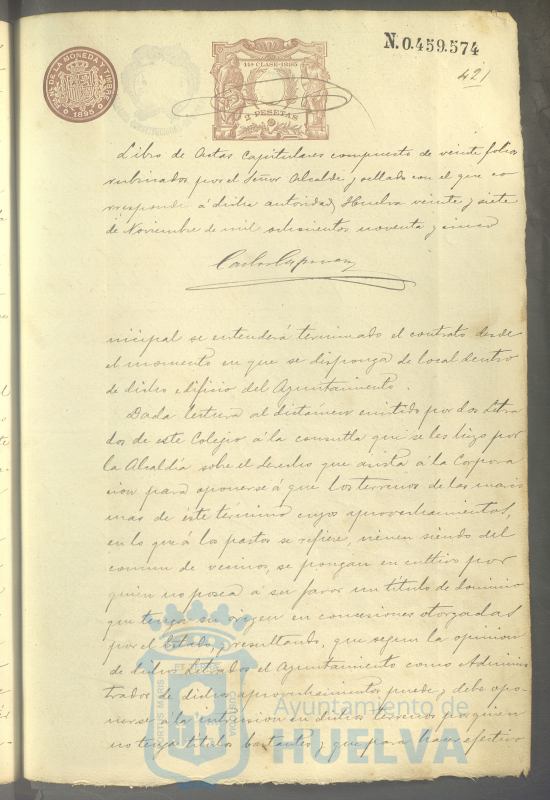 N.0.459.574
421
DE LA MONEDA Y TIMBRE
1895
11ª CLASE-1895
2 PESETAS
Libro de Actas Capitulares compuesto de veinte folios
rubricados por el Señor Alcalde y sellado con el que co
rresponde á dicha autoridad, Huelva veinte y siete
de Noviembre de mil ochocientos noventa y cinco
nicipal se entenderá terminado el contrato desde
el momento en que se disponga de local dentro
de dicho edificio del Ayuntamiento.
Dada lectura al dictámen emitido por dos Letra
dos de este Colegio á la consulta que se les hizo por
la Alcaldía sobre el derecho que asista á la Corpora
cion para oponerse á que los terrenos de las maris
mas de este termino cuyos aprovechamientos,
en lo que á los pastos se refiere, vienen siendo del
comun de vecinos, se pongan en cultivo por
quien no posea á su favor un titulo de dominio
que tenga su origen en concesiones otorgadas
por el Estado, y resultando, que segun la opinion
de dichos Letrados el Ayuntamiento como Adminis
trador de dichos aprovechamientos puede y debe opo
nerse á la intrusion en dichos terrenos por quien
no tenga titulos bastantes y que para hacer efectivo
PORTUS MARIS
CUSTODIA
Ayuntamiento de
HUELVA